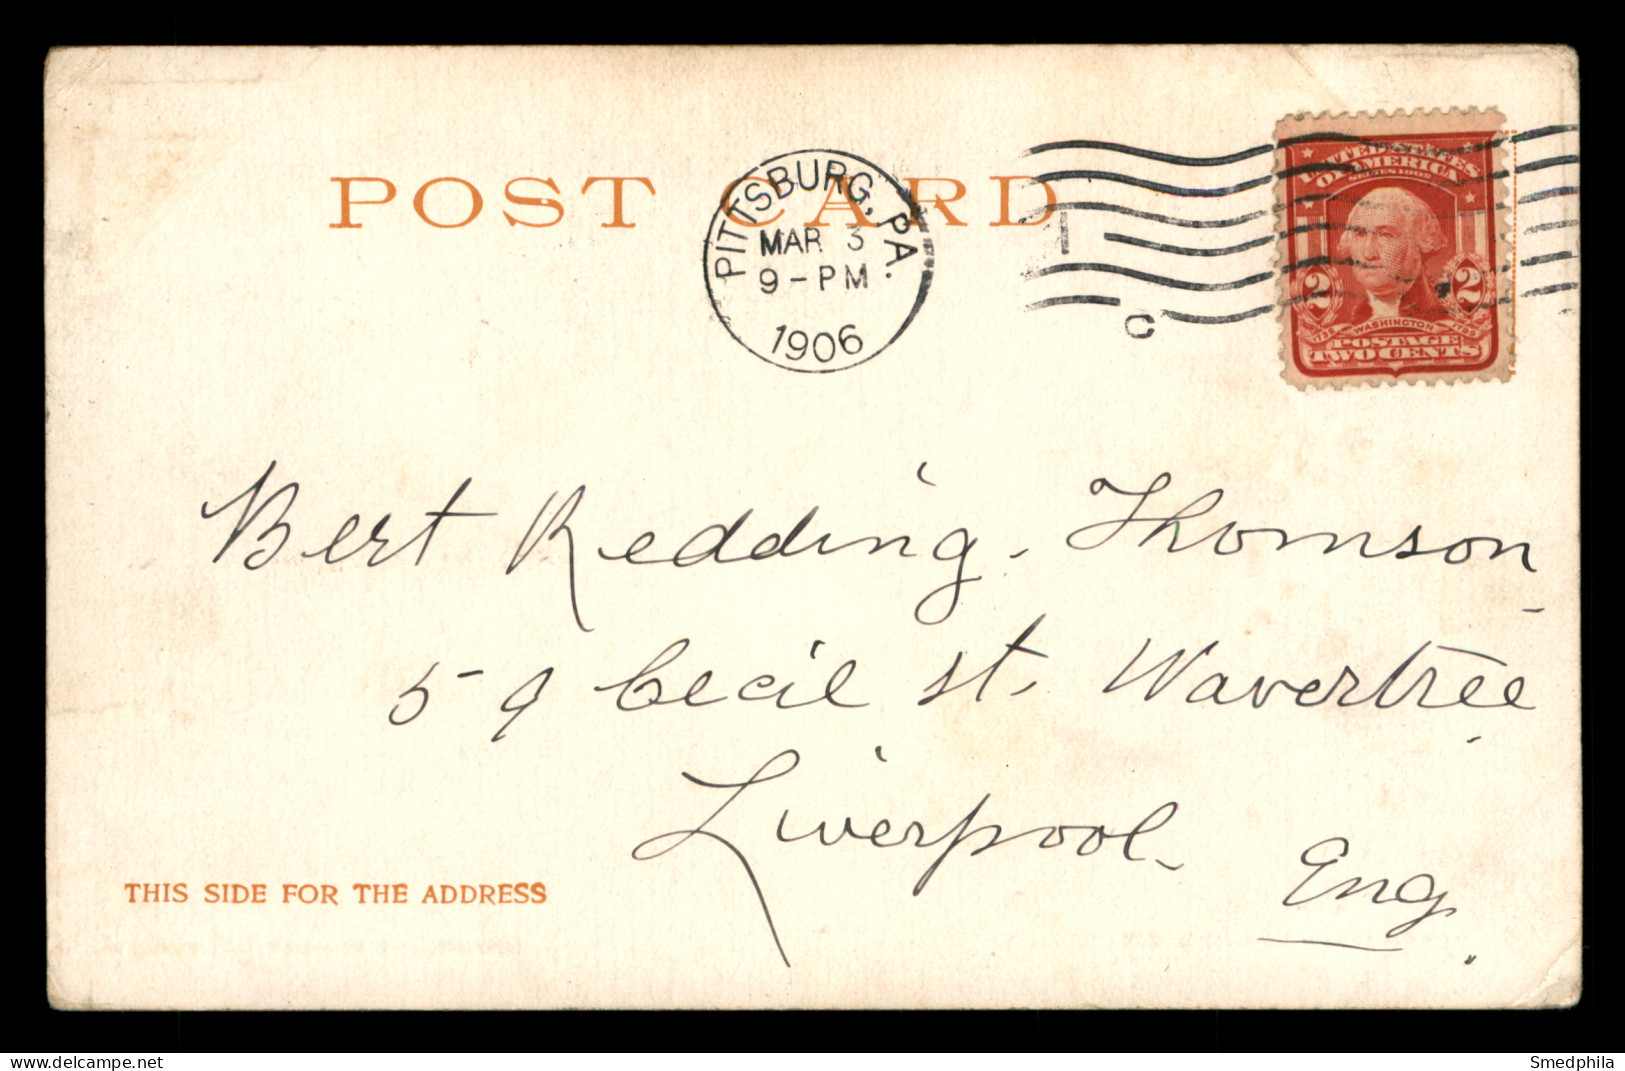 POST CARD
PITTSBURG, PA.
MAR 3
9-PM
1906
1
C
UNITED STATES
OF AMERICA
SERIES 1902
2 2
1732 WASHINGTON 1799
POSTAGE
TWO CENTS
Bert Redding. Thomson
59 Cecil St. Wavertree
Liverpool
Eng.
THIS SIDE FOR THE ADDRESS
www.delcampe.net
Smedphila